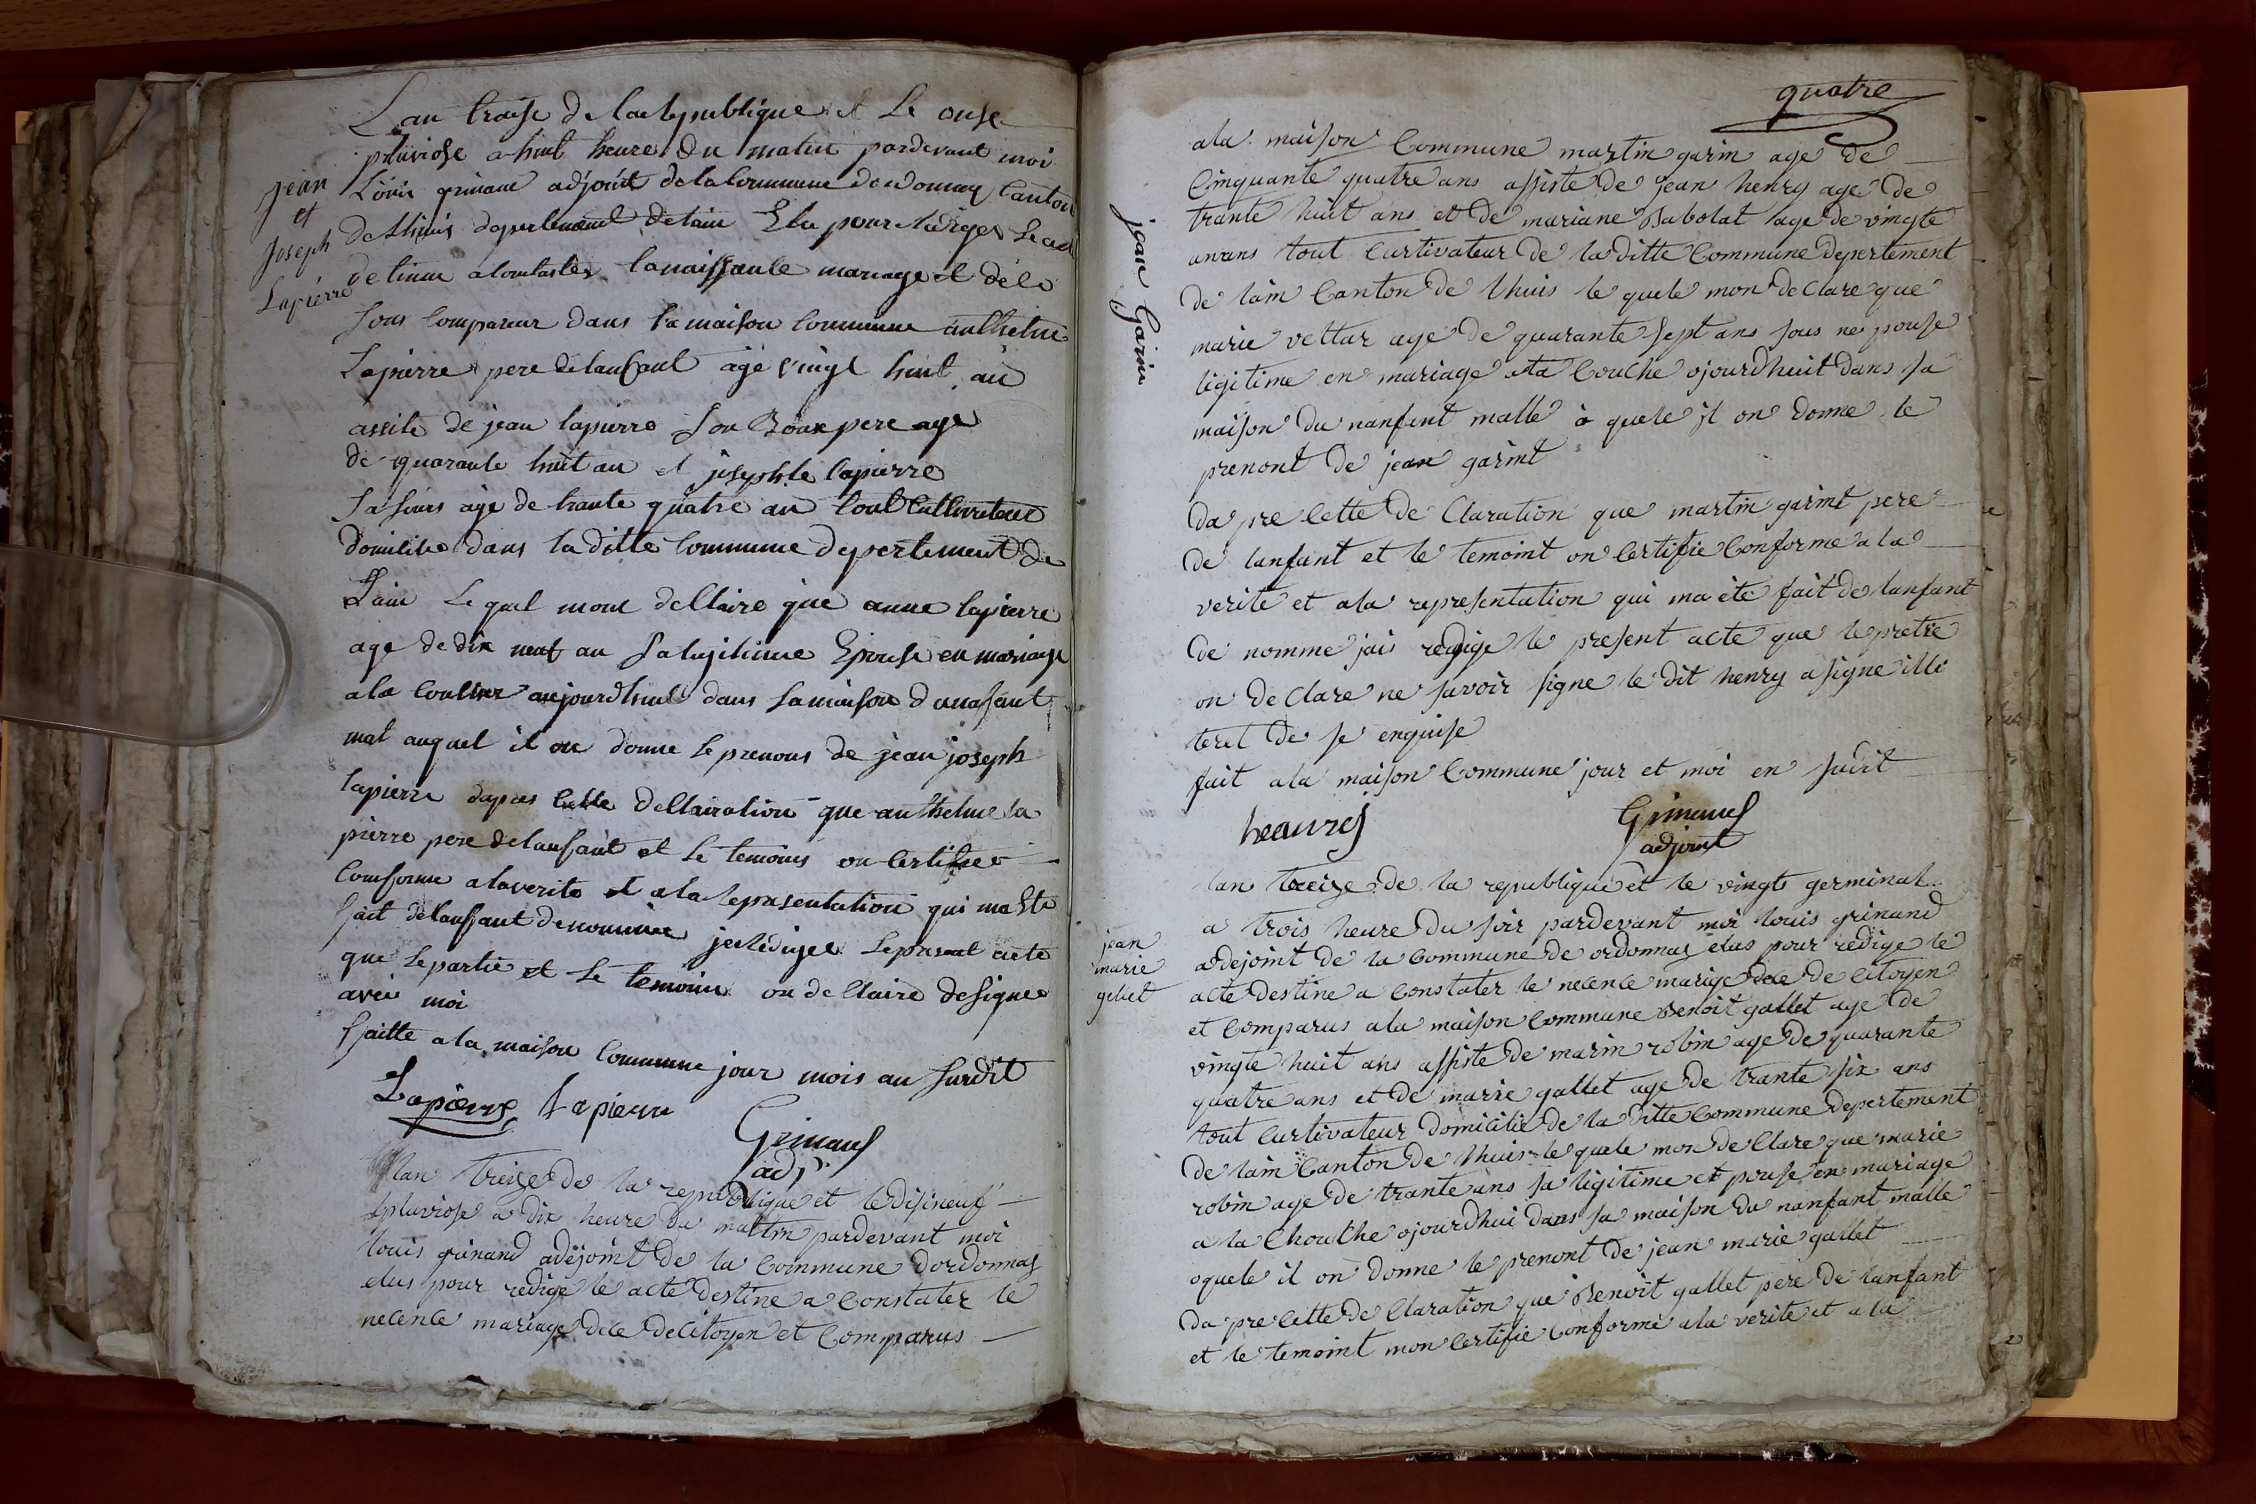 Lan traise de la republique et le onse
pluviose a huit heure du matin pardevant moi
Louis grinand adjoint de la Commune de dordonnaz Canton
de Lhuis departement de lain Elu pour rediger le act
destinne a Constater la naissance mariage et dele
sons compareur dans la maison commune anthelme
Lapierre pere de lanfant agé vingt huit an
assité de jean lapierre son Beau pere age
de quarante huit an et joseph le lapierre
sa seurs agé de trante quatre an tout Cultivateur
domilibe dans la ditte commune departement de
Lain le quel mont dellaire que anne lapierre
age de dix neuf an sa legitime Epouse en mariage
a la Coucher aujourdhuit dans sa maison dunanfant
mal auquel il on donne le prenons de jean joseph
lapierre dapres Cette dellairation que anthelme la
pierre pere de lanfant et le temoins on Certifier
Comforme a la verite et a la representation qui maete
fait de lanfant denommier je rediger le present acte
que le partie et le temoin on dellaire designer
avec moi
ffaitte a la maison Commune jour mois an surdit
Lapierre Lapierre
Grinand
adj
jean
et
Joseph
Lapierre
lan treize de la republique et le disineuf
pluviose a dix heure du mattin pardevant moi
louis grinand adejoint de la Commune dordonnas
elus pour redige le acte destine a Constater le
necence mariage dece de Citoyen et Comparus
quatre
a la maison Commune martin garin age de
Cinquante quatre ans assiste de jean henry age de
trante huit ans et de mariane Babolat age de vingte
un ans tout Curtivateur de la ditte Commune depertement
de lain Canton de lhuis le quele mon de Clare que
marie vettar age de quarante sept ans sous ne pouse
ligitime en mariage a la Couche ojourdhuit dans sa
maison du nanfant malle a quele il on donne le
prenont de jean garint
da pre Cette de Claration que martin garint pere
de lanfant et le temoint on Certifie Conforme a la
verite et a la representation qui ma ete fait de lanfant
de nomme jais redige le present acte que le pretre
on de Clare ne savoir signe le dit henry a signe illi
teret de se enquise
fait a la maison Commune jour et moi en sudit
heaurej
Grinand
adjoint
jean Garin
lan treize de la republique et le vingts germinat
a trois heure du soir pardevant moi louis grinand
adejoint de la Commune de ordonnas elus pour redige le
acte destine a Constater le necence marige dece de Citoyen
et Comparus a la maison Commune Benoit gallet age de
vingte huit ans assiste de marin robin age de quarante
quatre ans et de marie gallet age de trante six ans
tout Curtivateur domicilie de la ditte Commune depertement
de lain Canton de lhuis le quele mon de Clare que marie
robin age de trante ans sa ligitime et pouse en mariage
a la Chouche ojourdhui dans sa maison du nanfant malle
oquele il on donne le prenont de jean marie gallet
da pre Cette de Claration que Benoit gallet pere de lanfant
et le temoint mon Certifie Conforme a la verite et a la
jean
marie
gelet